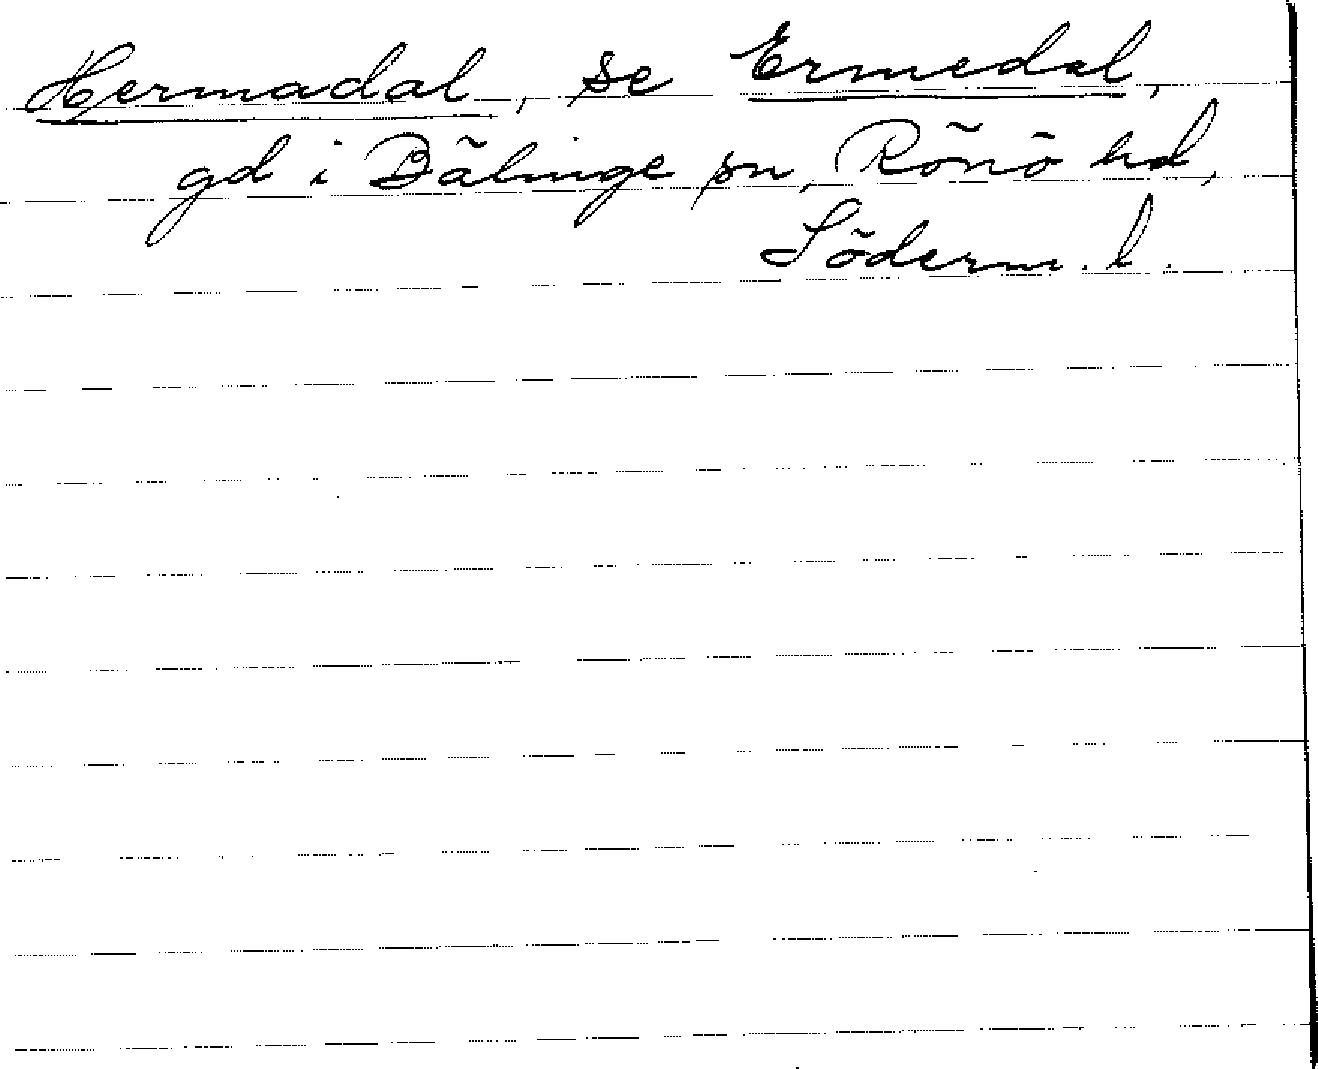 Hermadal, se Ermedal,
gd i Bälinge sn, Rönö hd,
Söderm. l.